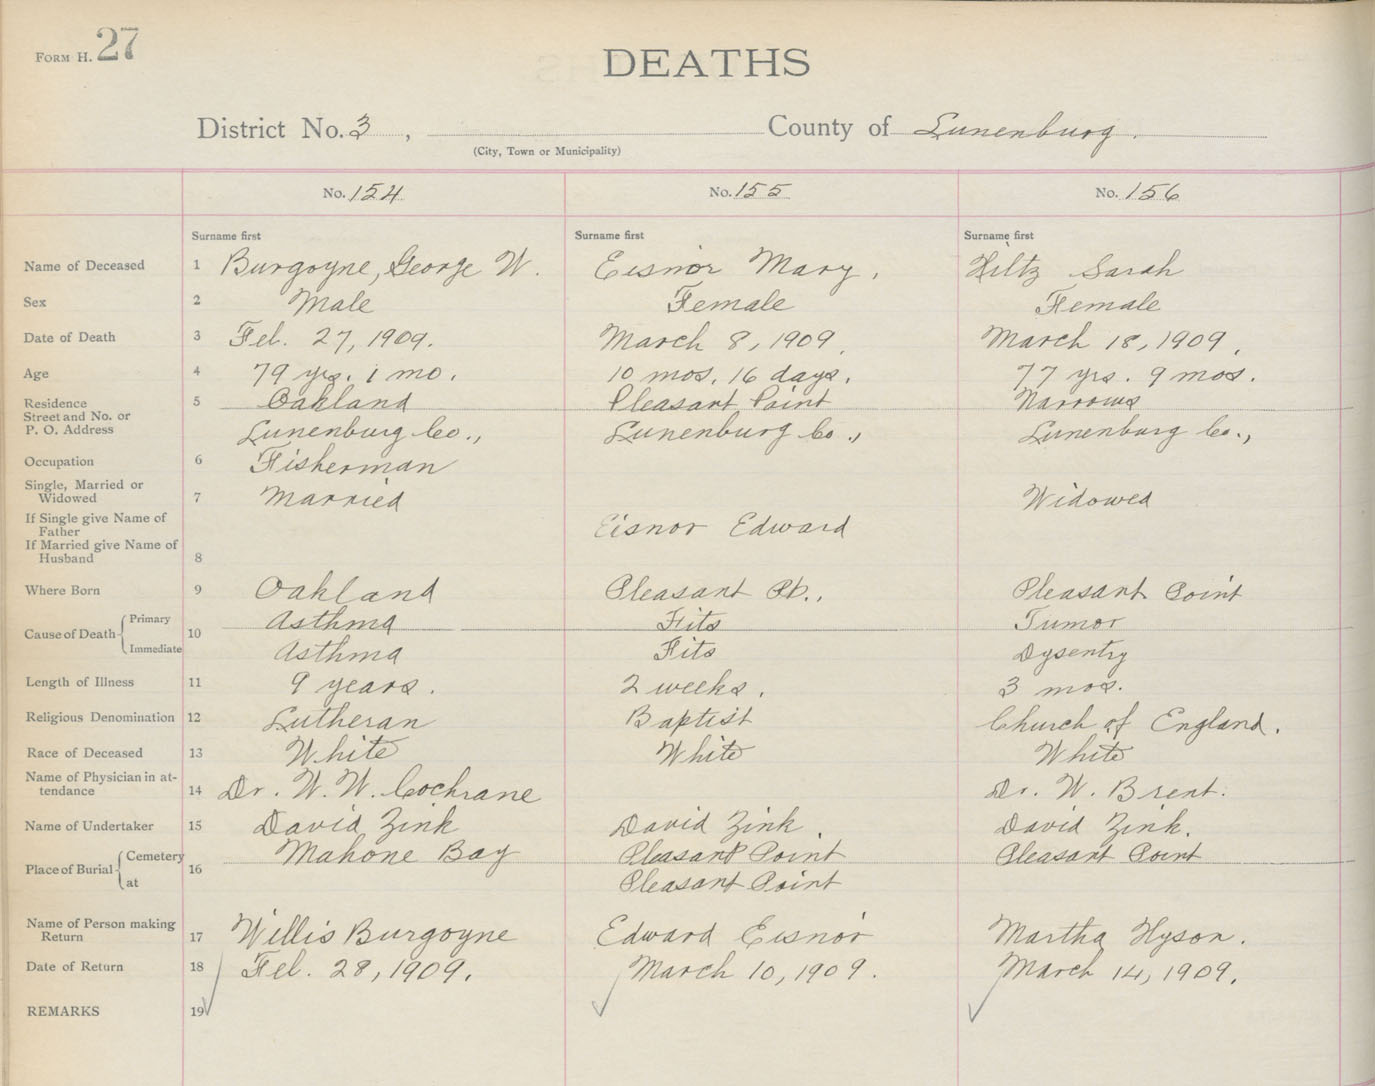 FORM H. 27
DEATHS
District No. 3 , County of Lunenburg.
(City, Town or Municipality)
No. 154 No. 155 No. 156
Surname first Surname first Surname first
Name of Deceased 1 Burgoyne, George W. Eisnor Mary, Hiltz Sarah
Sex 2 Male Female Female
Date of Death 3 Feb. 27, 1909. March 8, 1909. March 18, 1909.
Age 4 79 yrs. 1 mo. 10 mos. 16 days. 77 yrs. 9 mos.
Residence 5 Oakland Pleasant Point Narrows
Street and No. or
P. O. Address Lunenburg Co., Lunenburg Co., Lunenburg Co.,
Occupation 6 Fisherman
Single, Married or
Widowed 7 Married Widowed
If Single give Name of
Father Eisnor Edward
If Married give Name of
Husband 8
Where Born 9 Oakland Pleasant Pt., Pleasant Point
Cause of Death Primary 10 Asthma Fits Tumor
Immediate Asthma Fits Dysentry
Length of Illness 11 9 years. 2 weeks. 3 mos.
Religious Denomination 12 Lutheran Baptist Church of England.
Race of Deceased 13 White White White
Name of Physician in at-
tendance 14 Dr. W. W. Cochrane Dr. W. Brent.
Name of Undertaker 15 David Zink David Zink. David Zink.
Place of Burial Cemetery 16 Mahone Bay Pleasant Point Pleasant Point
at Pleasant Point
Name of Person making
Return 17 Willis Burgoyne Edward Eisnor Martha Hyson.
Date of Return 18 Feb. 28, 1909. March 10, 1909. March 14, 1909.
REMARKS 19